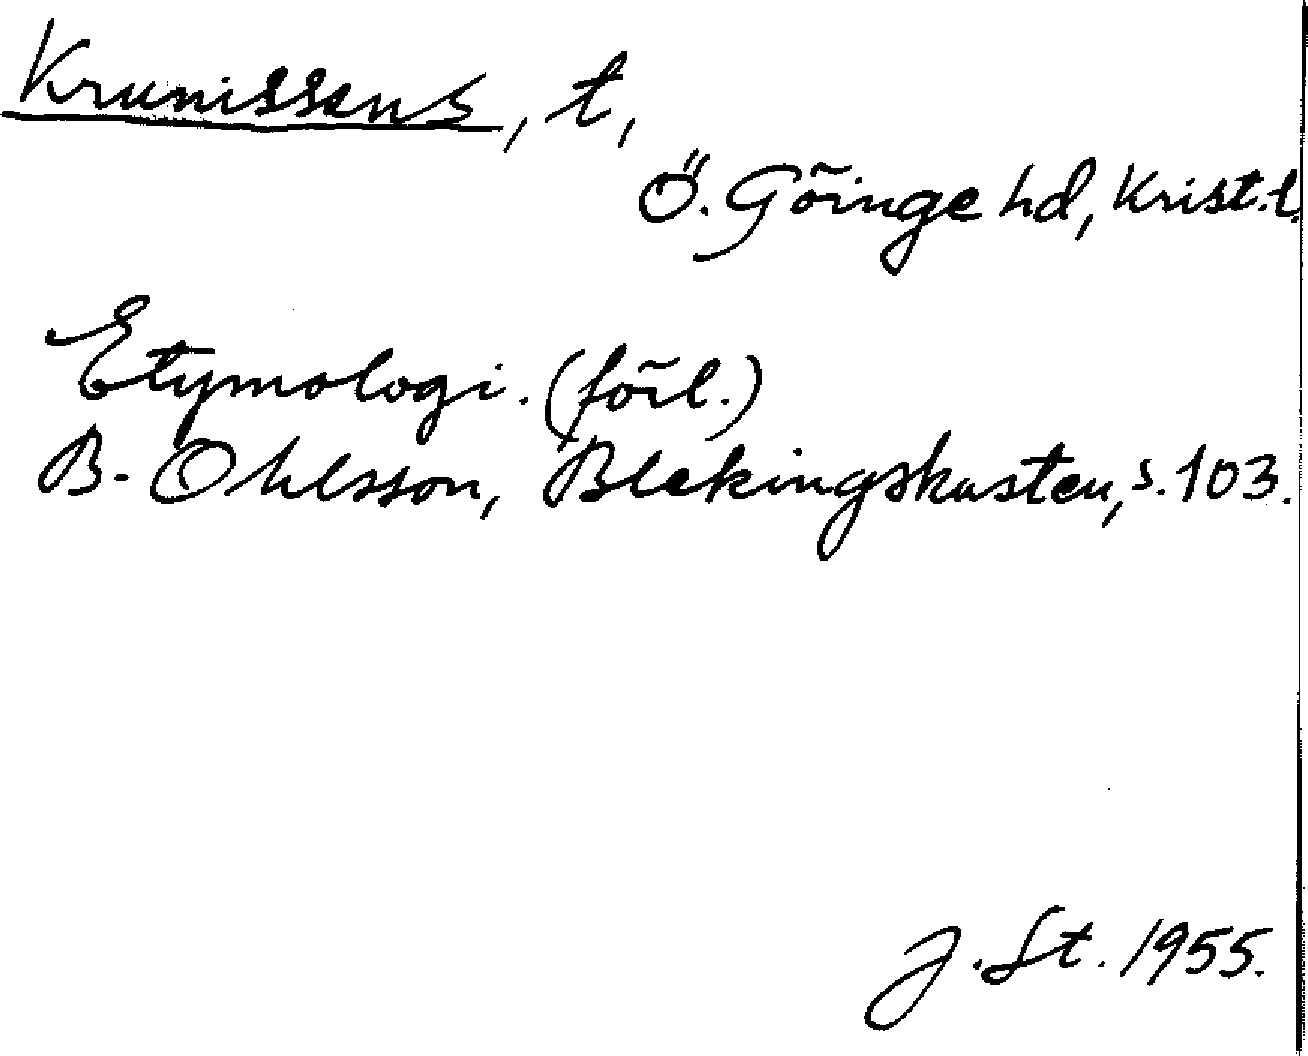 Krunissens, t,
Ö. Göinge hd, Krist.l.
Etymologi. (förl.)
B. Ohlsson, Blekingskusten, s. 103.
J. St. 1955.